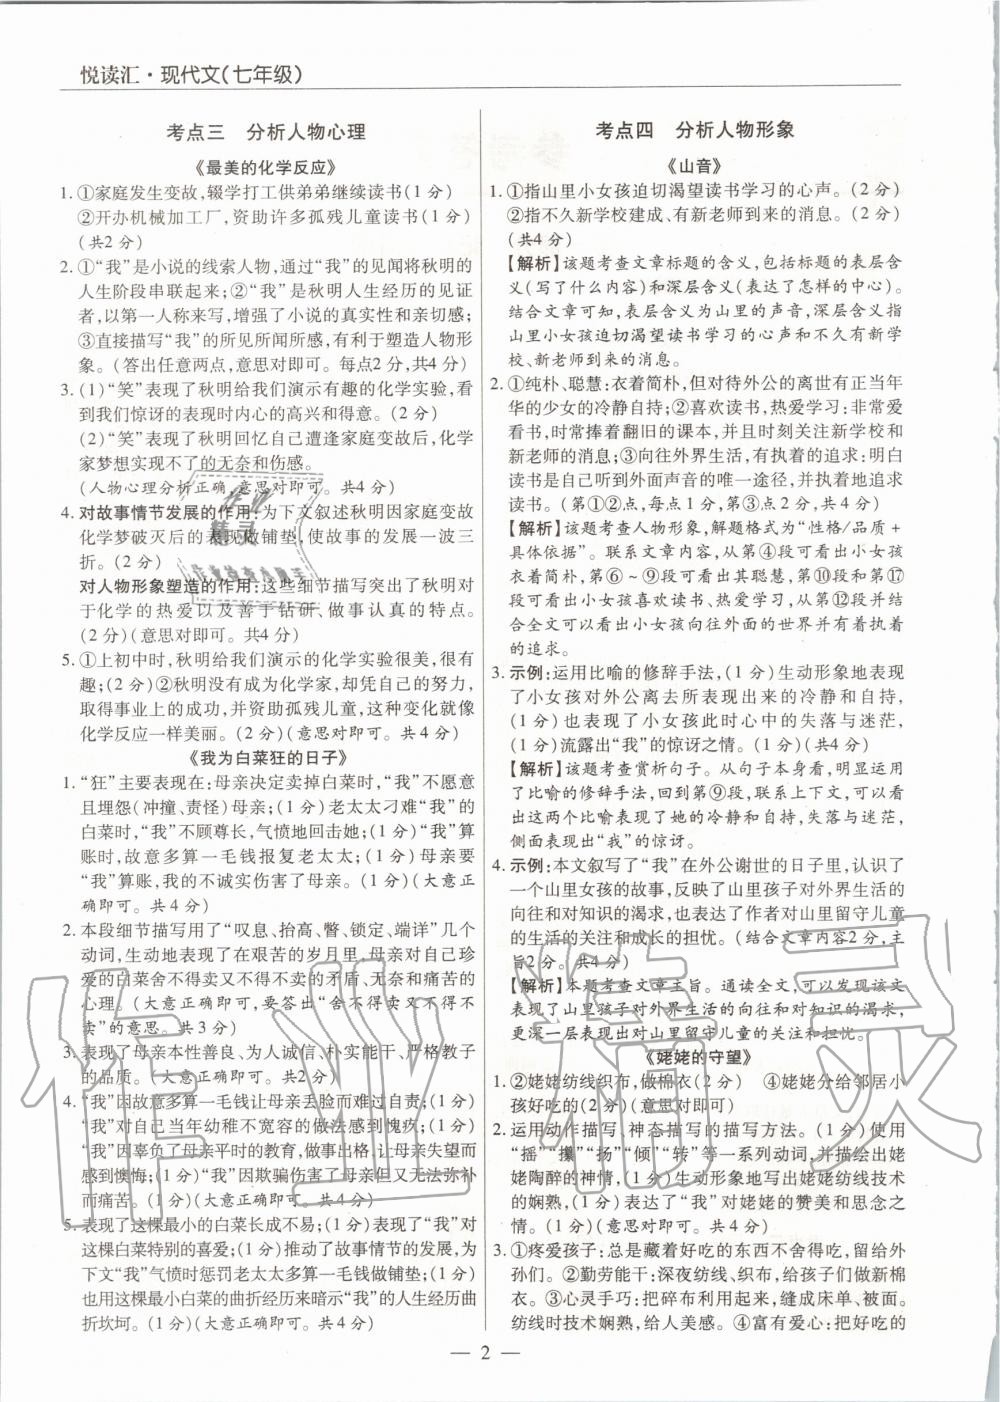 悦读汇·现代文(七年级)
考点三 分析人物心理
《最美的化学反应》
1. ①家庭发生变故,辍学打工供弟弟继续读书(1 分)
②开办机械加工厂,资助许多孤残儿童读书(1 分)
(共2 分)
2. ①“我”是小说的线索人物,通过“我”的见闻将秋明的
人生阶段串联起来;②“我”是秋明人生经历的见证
者,以第一人称来写,增强了小说的真实性和亲切感;
③直接描写“我”的所见所闻所感,有利于塑造人物形
象。(答出任意两点,意思对即可。每点2 分,共4 分)
3. (1)“笑”表现了秋明给我们演示有趣的化学实验,看
到我们惊讶的表现时内心的高兴和得意。(2 分)
(2)“笑”表现了秋明回忆自己遭逢家庭变故后,化学
家梦想实现不了的无奈和伤感。
(人物心理分析正确,意思对即可。共4 分)
4. 对故事情节发展的作用:为下文叙述秋明因家庭变故
化学梦破灭后的表现做铺垫,使故事的发展一波三
折。(2 分)
对人物形象塑造的作用:这些细节描写突出了秋明对
于化学的热爱以及善于钻研、做事认真的特点。
(2 分)(意思对即可。共4 分)
5. ①上初中时,秋明给我们演示的化学实验很美,很有
趣;(2 分)②秋明没有成为化学家,却凭自己的努力,
取得事业上的成功,并资助孤残儿童,这种变化就像
化学反应一样美丽。(2 分)(意思对即可。共4 分)
《我为白菜狂的日子》
1. “狂”主要表现在:母亲决定卖掉白菜时,“我”不愿意
且埋怨(冲撞、责怪)母亲;(1 分)老太太刁难“我”的
白菜时,“我”不顾尊长,气愤地回击她;(1 分)“我”算
账时,故意多算一毛钱报复老太太;(1 分)母亲要
“我”算账,我的不诚实伤害了母亲。(1 分)(大意正
确即可。共 4 分)
2. 本段细节描写用了“叹息、抬高、瞥、锁定、端详”几个
动词,生动地表现了在艰苦的岁月里,母亲对自己珍
爱的白菜舍不得卖又不得不卖的矛盾、无奈和痛苦的
心理。(大意正确即可,要答出“舍不得卖又不得不
卖”的意思。共 3 分)
3. 表现了母亲本性善良、为人诚信、朴实能干、严格教子
的品质。(大意正确即可。共2 分)
4. “我”因故意多算一毛钱让母亲丢脸而难过自责;(1
分)“我”对自己当年幼稚不宽容的做法感到愧疚;(1分)
“我”因辜负了母亲平时的教育,做事出格,让母亲失望而
感到懊悔;(1 分)“我”因欺骗伤害了母亲但又无法弥补
而痛苦。(1 分)(大意正确即可。共4 分)
5. 表现了这棵最小的白菜长成不易;(1 分)表现了“我”对
这棵白菜特别的喜爱;(1 分)推动了故事情节的发展,为
下文“我”气愤时惩罚老太太多算一毛钱做铺垫;(1 分)
也用这棵最小白菜的曲折经历来暗示“我”的人生经历曲
折坎坷。(1 分)(大意正确即可。共4 分)
考点四 分析人物形象
《山音》
1. ①指山里小女孩迫切渴望读书学习的心声。(2 分)
②指不久新学校建成、有新老师到来的消息。(2 分)
(共4 分)
【解析】该题考查文章标题的含义,包括标题的表层含
义(写了什么内容)和深层含义(表达了怎样的中心)。
结合文章可知,表层含义为山里的声音,深层含义指
山里小女孩迫切渴望读书学习的心声和不久有新学
校、新老师到来的消息。
2. ①纯朴、聪慧:衣着简朴,但对待外公的离世有正当年
华的少女的冷静自持;②喜欢读书,热爱学习:非常爱
看书,时常捧着翻旧的课本,并且时刻关注新学校和
新老师的消息;③向往外界生活,有执着的追求:明白
读书是自己听到外面声音的唯一途径,并执着地追求
读书。(第①②点,每点1 分,第③点2 分,共4 分)
【解析】该题考查人物形象,解题格式为“性格/品质+
具体依据”。联系文章内容,从第④段可看出小女孩
衣着简朴,第⑥~⑨段可看出其聪慧,第⑩段和第⑰
段可看出小女孩喜欢读书、热爱学习,从第⑫段并结
合全文可以看出小女孩向往外面的世界并有着执着
的追求。
3. 示例:运用比喻的修辞手法,(1 分)生动形象地表现
了小女孩对外公离去所表现出来的冷静和自持,
(1 分)也表现了小女孩此时心中的失落与迷茫,
(1 分)流露出“我”的惊讶之情。(1 分)(共4 分)
【解析】该题考查赏析句子。从句子本身看,明显运用
了比喻的修辞手法,回到第⑨段,联系上下文,可以看
出这两个比喻表现了她的冷静和自持,失落与迷茫,
侧面表现出“我”的惊讶。
4. 示例:本文叙写了“我”在外公谢世的日子里,认识了
一个山里女孩的故事,反映了山里孩子对外界生活的
向往和对知识的渴求,也表达了作者对山里留守儿童
的生活的关注和成长的担忧。(结合文章内容2 分,主
旨2 分。共4 分)
【解析】本题考查文章主旨。通读全文,可以发现该文
表现了山里孩子对外界生活的向往和对知识的渴求,
更深一层表现出对山里留守儿童的关注和担忧。
《姥姥的守望》
1. ②姥姥纺线织布,做棉衣(2 分) ④姥姥分给邻居小
孩好吃的(2 分)(意思对即可)
2. 运用动作描写、神态描写的描写方法。(1 分)使用
“摇”“攥”“扬”“倾”“转”等一系列动词,并描绘出姥
姥陶醉的神情,(1 分)生动形象地写出姥姥纺线技术
的娴熟,(1 分)表达了“我”对姥姥的赞美和思念之
情。(1 分)(意思对即可。共4 分)
3. ①疼爱孩子:总是藏着好吃的东西不舍得吃,留给外
孙们。②勤劳能干:深夜纺线、织布,给孩子们做新棉
衣。③心灵手巧:把碎布利用起来,缝成床单、被面。
纺线时技术娴熟,给人美感。④富有爱心:把好吃的
— 2 —
作业精灵